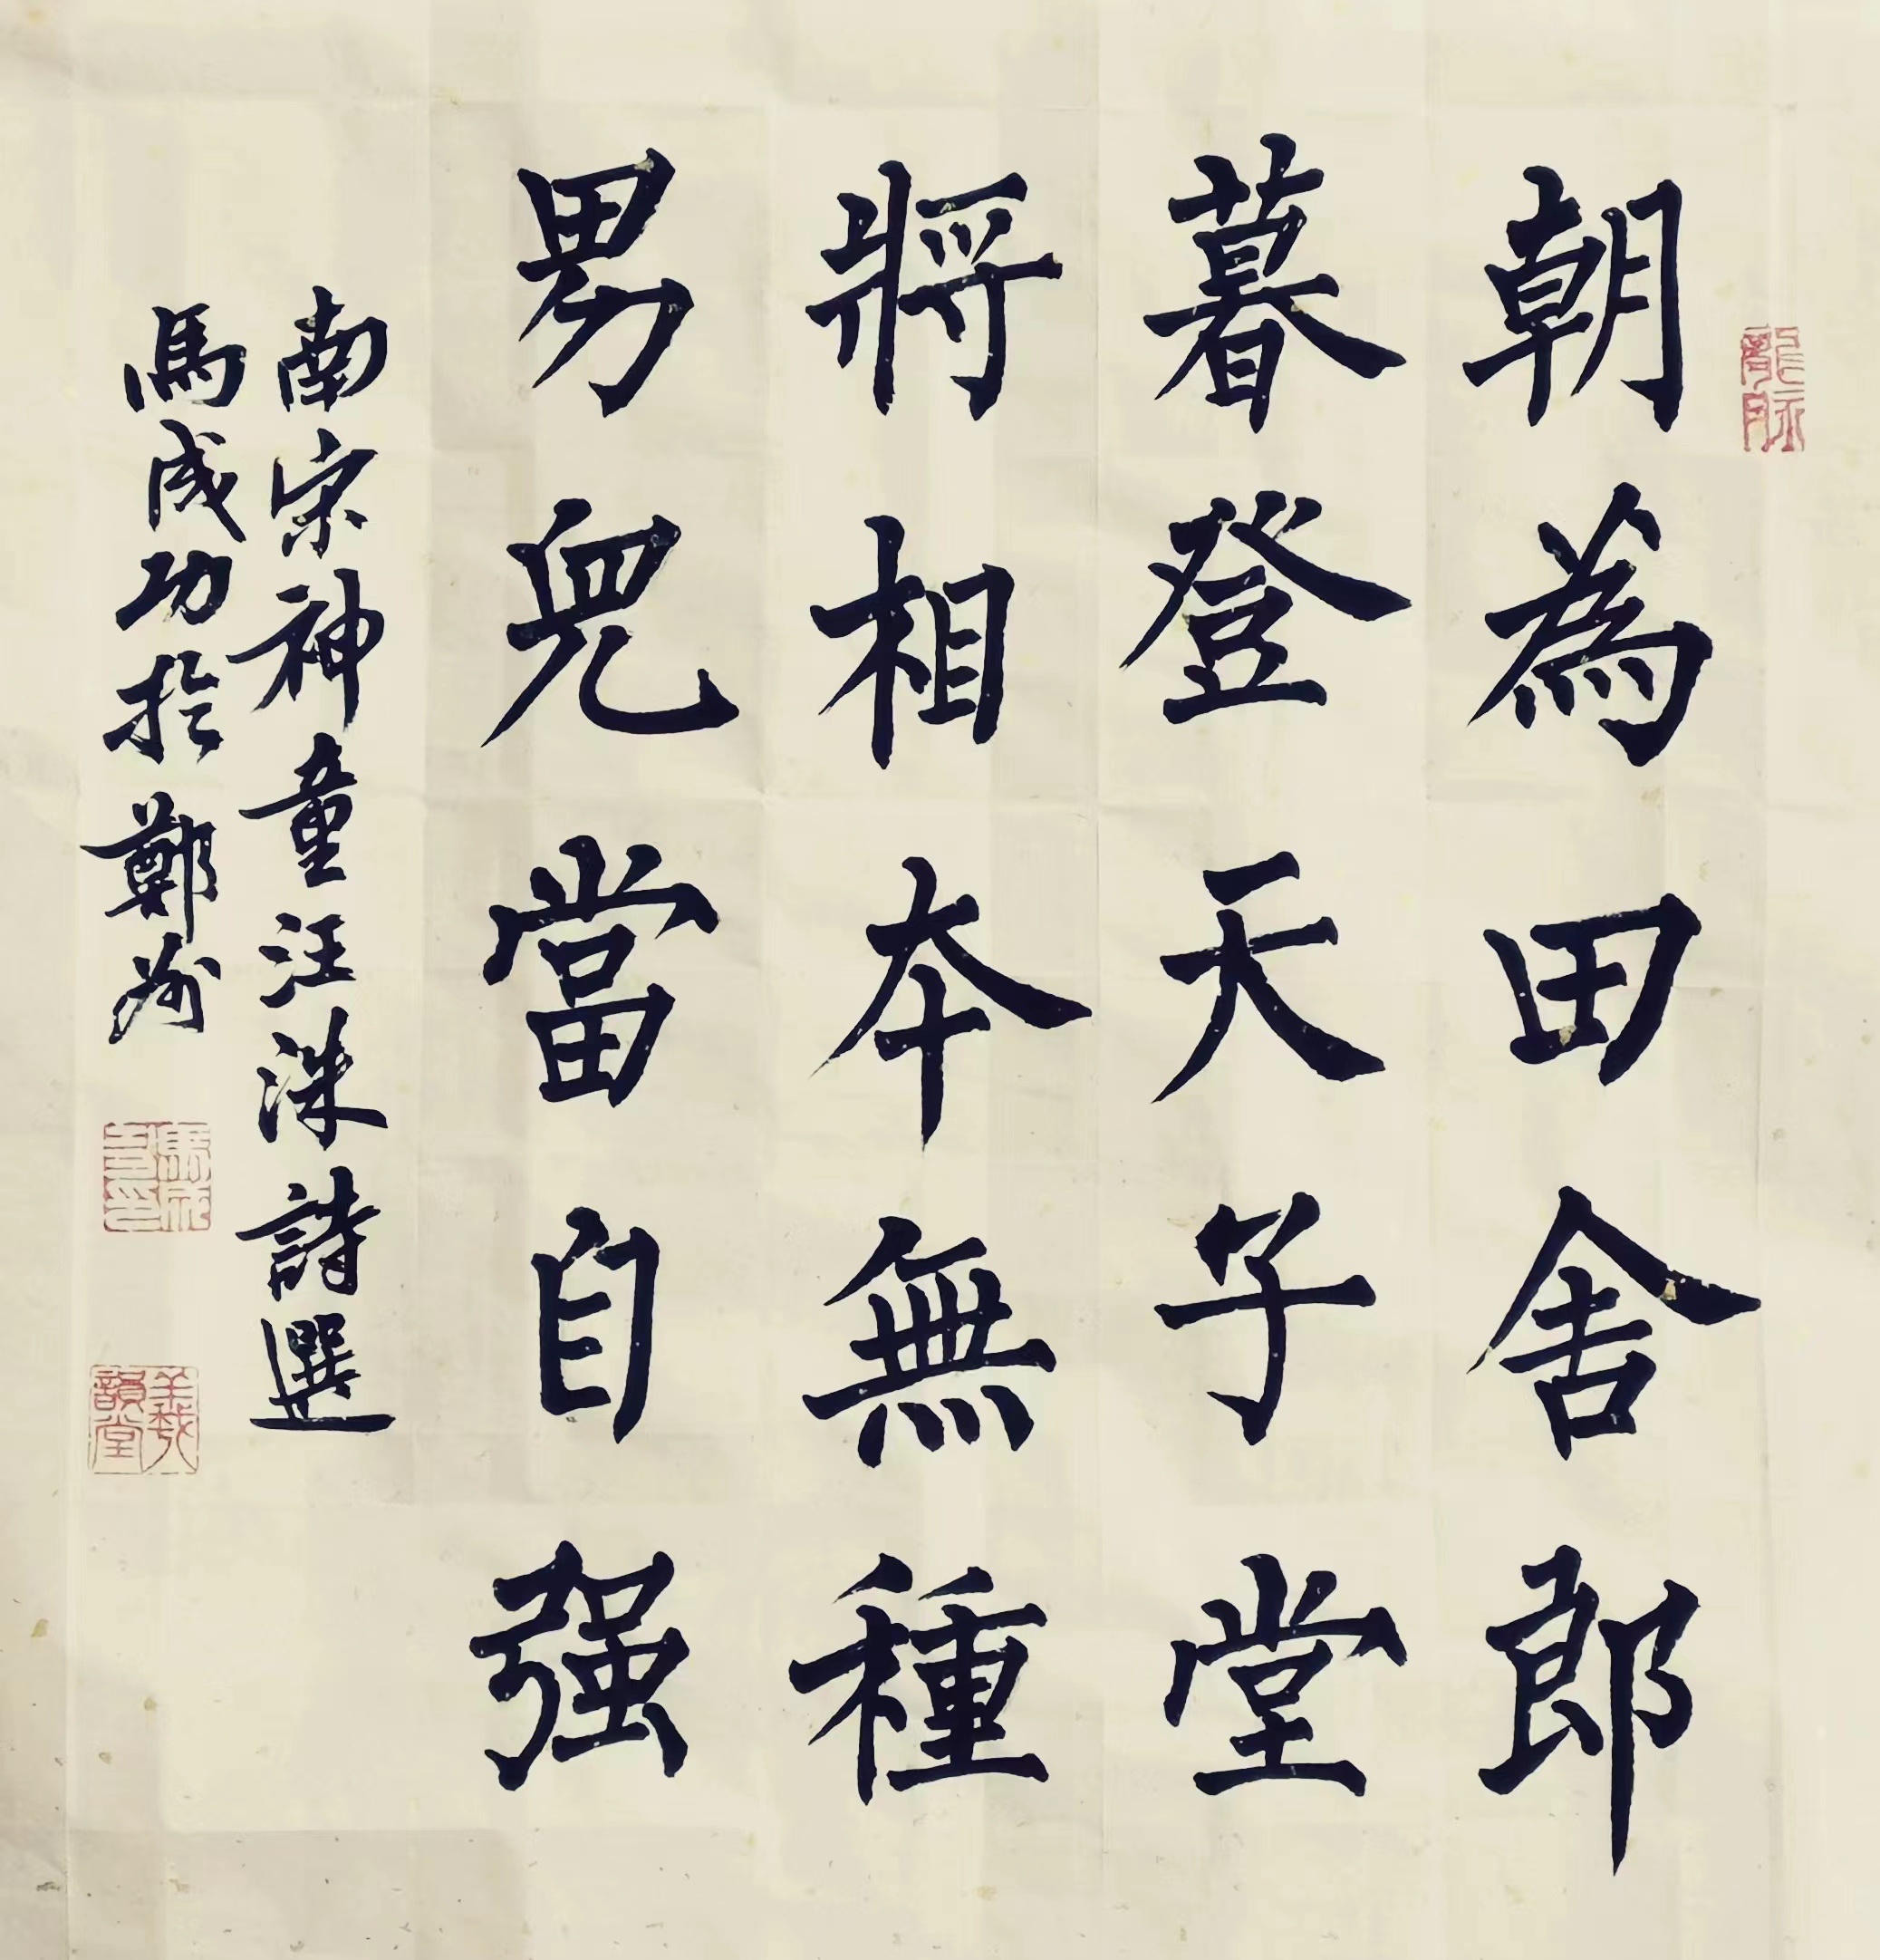 朝為田舍郎
暮登天子堂
將相本無種
男兒當自强
南宋神童汪洙詩選
馬成功於鄭州
羲韻堂